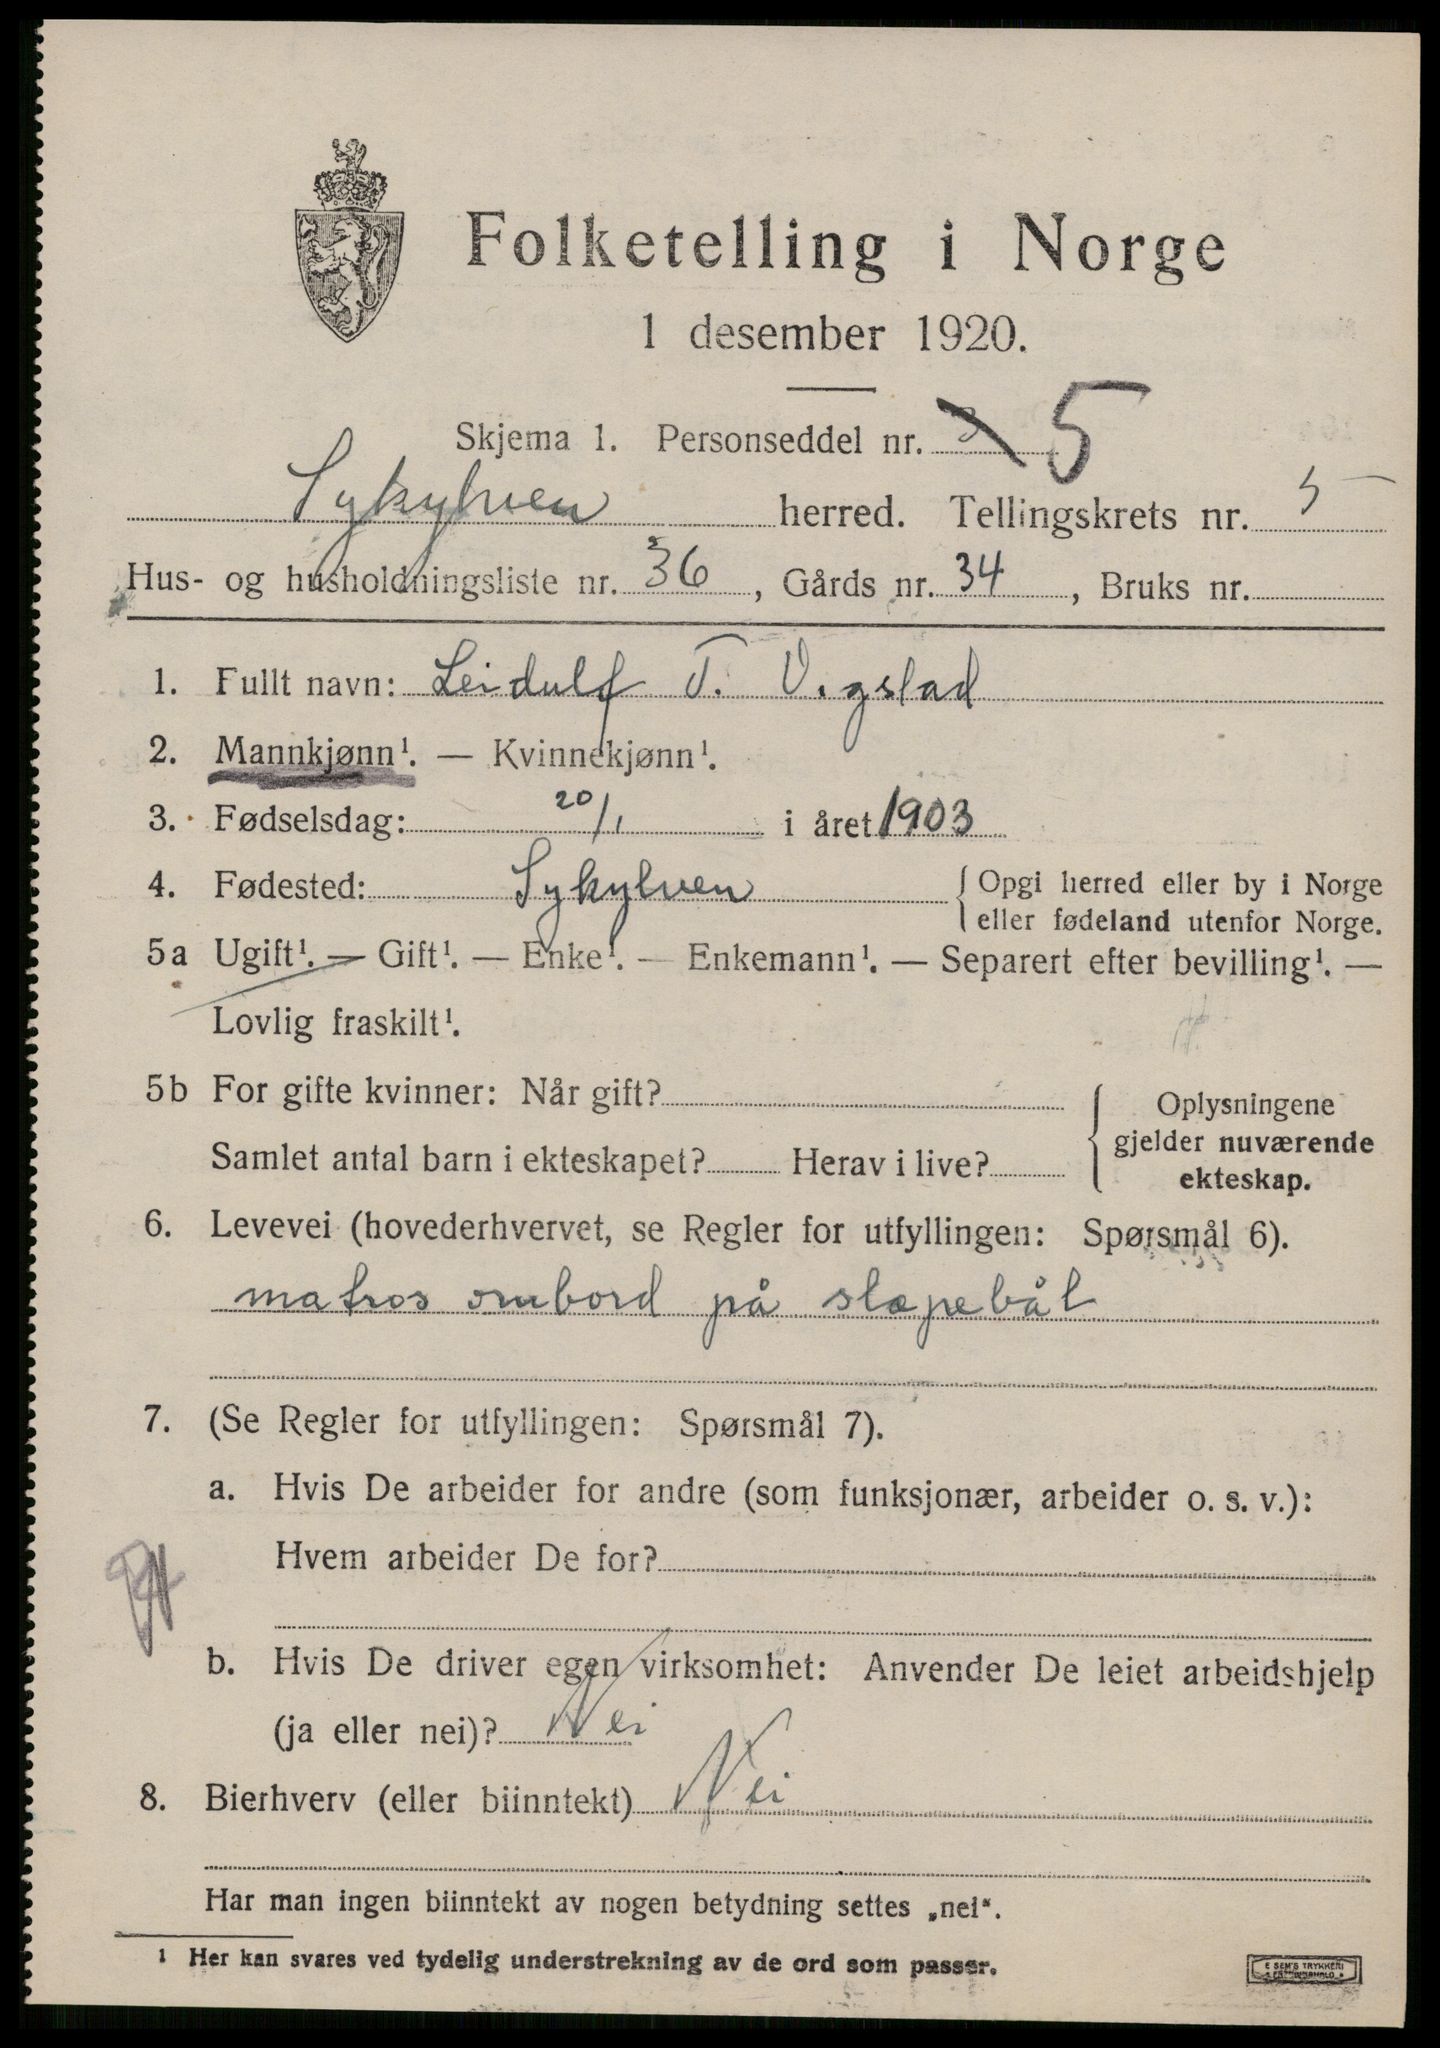 Folketelling i Norge
1 desember 1920.
Skjema 1. Personseddel nr. 3 5
Sykylven herred. Tellingskrets nr. 5
Hus- og husholdningsliste nr. 36, Gårds nr. 34, Bruks nr.
1. Fullt navn: Leidulf T. Vigslad
2. Mannkjønn¹. — Kvinnekjønn¹.
3. Fødselsdag: 20/1 i året 1903
4. Fødested: Sykylven { Opgi herred eller by i Norge
eller fødeland utenfor Norge.
5a Ugift¹. — Gift¹. — Enke¹. — Enkemann¹. — Separert efter bevilling¹. —
Lovlig fraskilt¹.
5b For gifte kvinner: Når gift? { Oplysningene
gjelder nuværende
Samlet antal barn i ekteskapet? Herav i live?
ekteskap.
6. Levevei (hovederhvervet, se Regler for utfyllingen: Spørsmål 6).
matros ombord på slæpebåt
7. (Se Regler for utfyllingen: Spørsmål 7).
a. Hvis De arbeider for andre (som funksjonær, arbeider o. s. v.):
Hvem arbeider De for?
b. Hvis De driver egen virksomhet: Anvender De leiet arbeidshjelp
(ja eller nei)? Nei
8. Bierhverv (eller biinntekt) Nei
Har man ingen biinntekt av nogen betydning settes „nei“.
1 Her kan svares ved tydelig understrekning av de ord som passer.
E SEM'S TRYKKERI